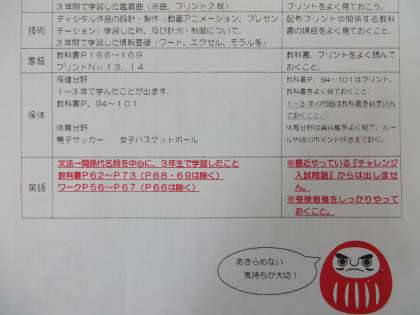 3年間で学習した鑑賞曲(8曲、プリント2枚)
プリントをよく見ておこう。
技術
ディジタル作品の設計・製作(動画アニメーション、プレゼン
テーション)学習した所、及び計測・制御について。
3年間で学習した情報基礎(ワード、エクセル、モラル等)
配布プリントや関係する教科
書の項目をよく見ておくこと。
家庭
教科書P166〜169
プリントNo13、14
教科書、プリントをよく読んで
おくこと。
保体
保健分野
1〜3年で学んだことが出ます。
教科書P、94〜101
体育分野
男子サッカー 女子バスケットボール
教科書P、94〜101はプリント、
教科書をよく見ておくこと。
1〜3年の問題は教科書を必ず読ん
でおくこと。
英語
文法→関係代名詞を中心に、3年生で学習したこと
教科書P62〜P73(P68・69は除く)
ワークP56〜P67(P66は除く)
※最近やっている『チャレンジ
入試問題』からは出しませ
ん。
※受検勉強をしっかりやって
おくこと。
あきらめない
気持ちが大切!